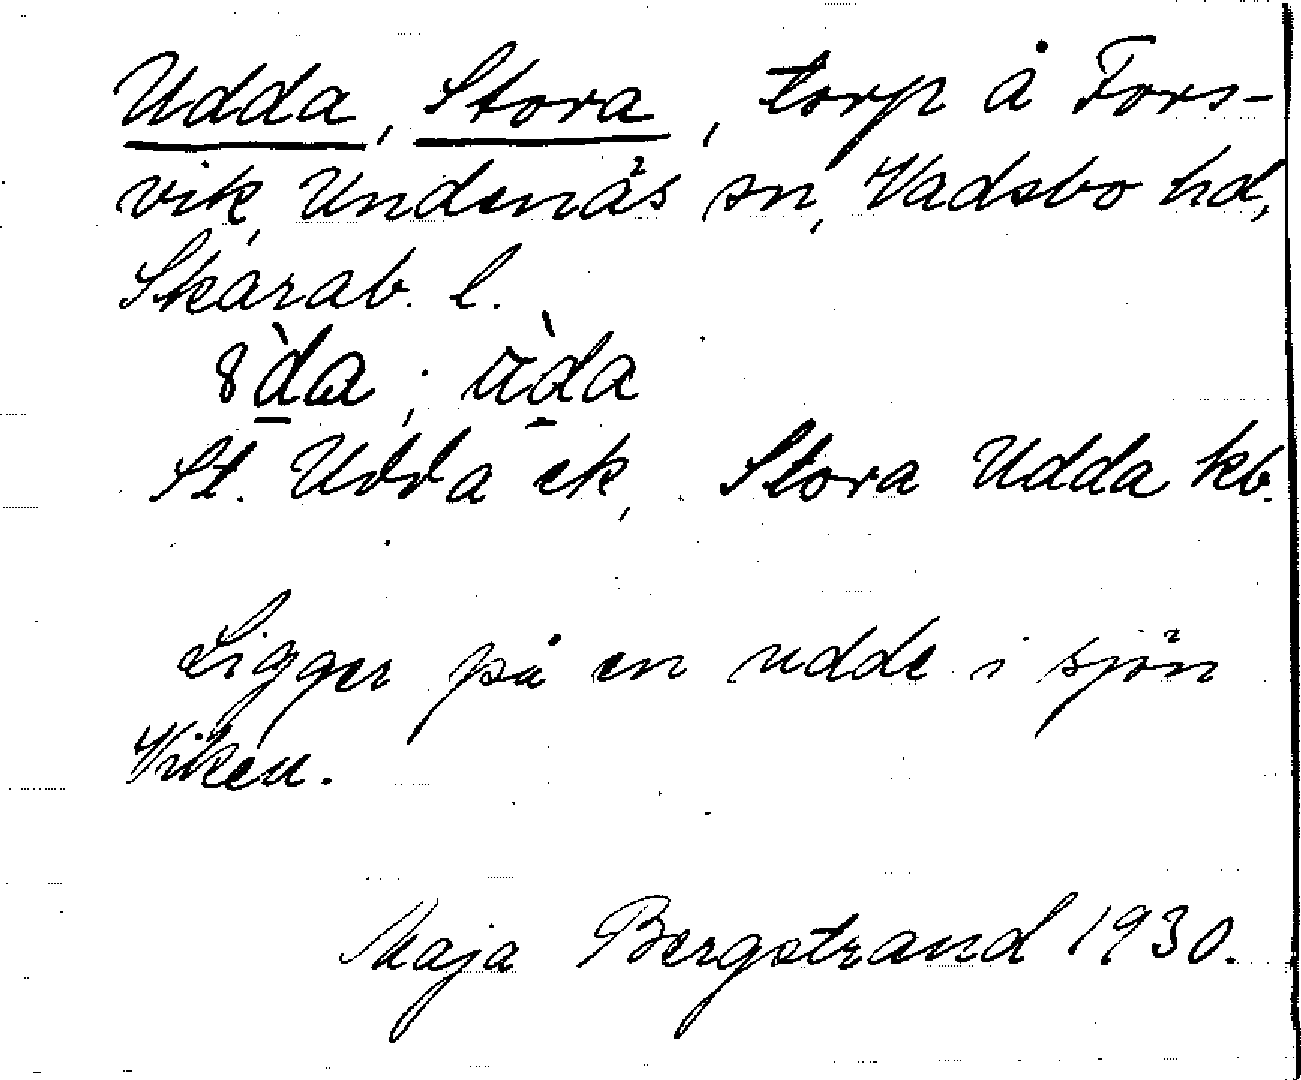 Udda, Stora, torp å Fors-
vik, Undenäs sn, Vadsbo hd,
Skarab. l.
8̀d̲a ; ùd̲a
St. Udda ek, Stora Udda kb.
Ligger på en udde i sjön
Viken.
Maja Bergstrand 1930.